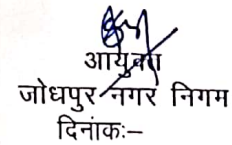 आयुक्त
जोधपुर नगर निगम
दिनांकः–